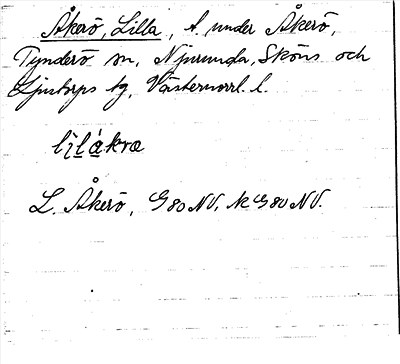 Åkerö, Lilla, t. under Åkerö,
Tynderö sn, Njurunda, Sköns och
Ljustorps tg, Västernorrl. l.
lìlákræ
L. Åkerö, G80NV, k G80NV.